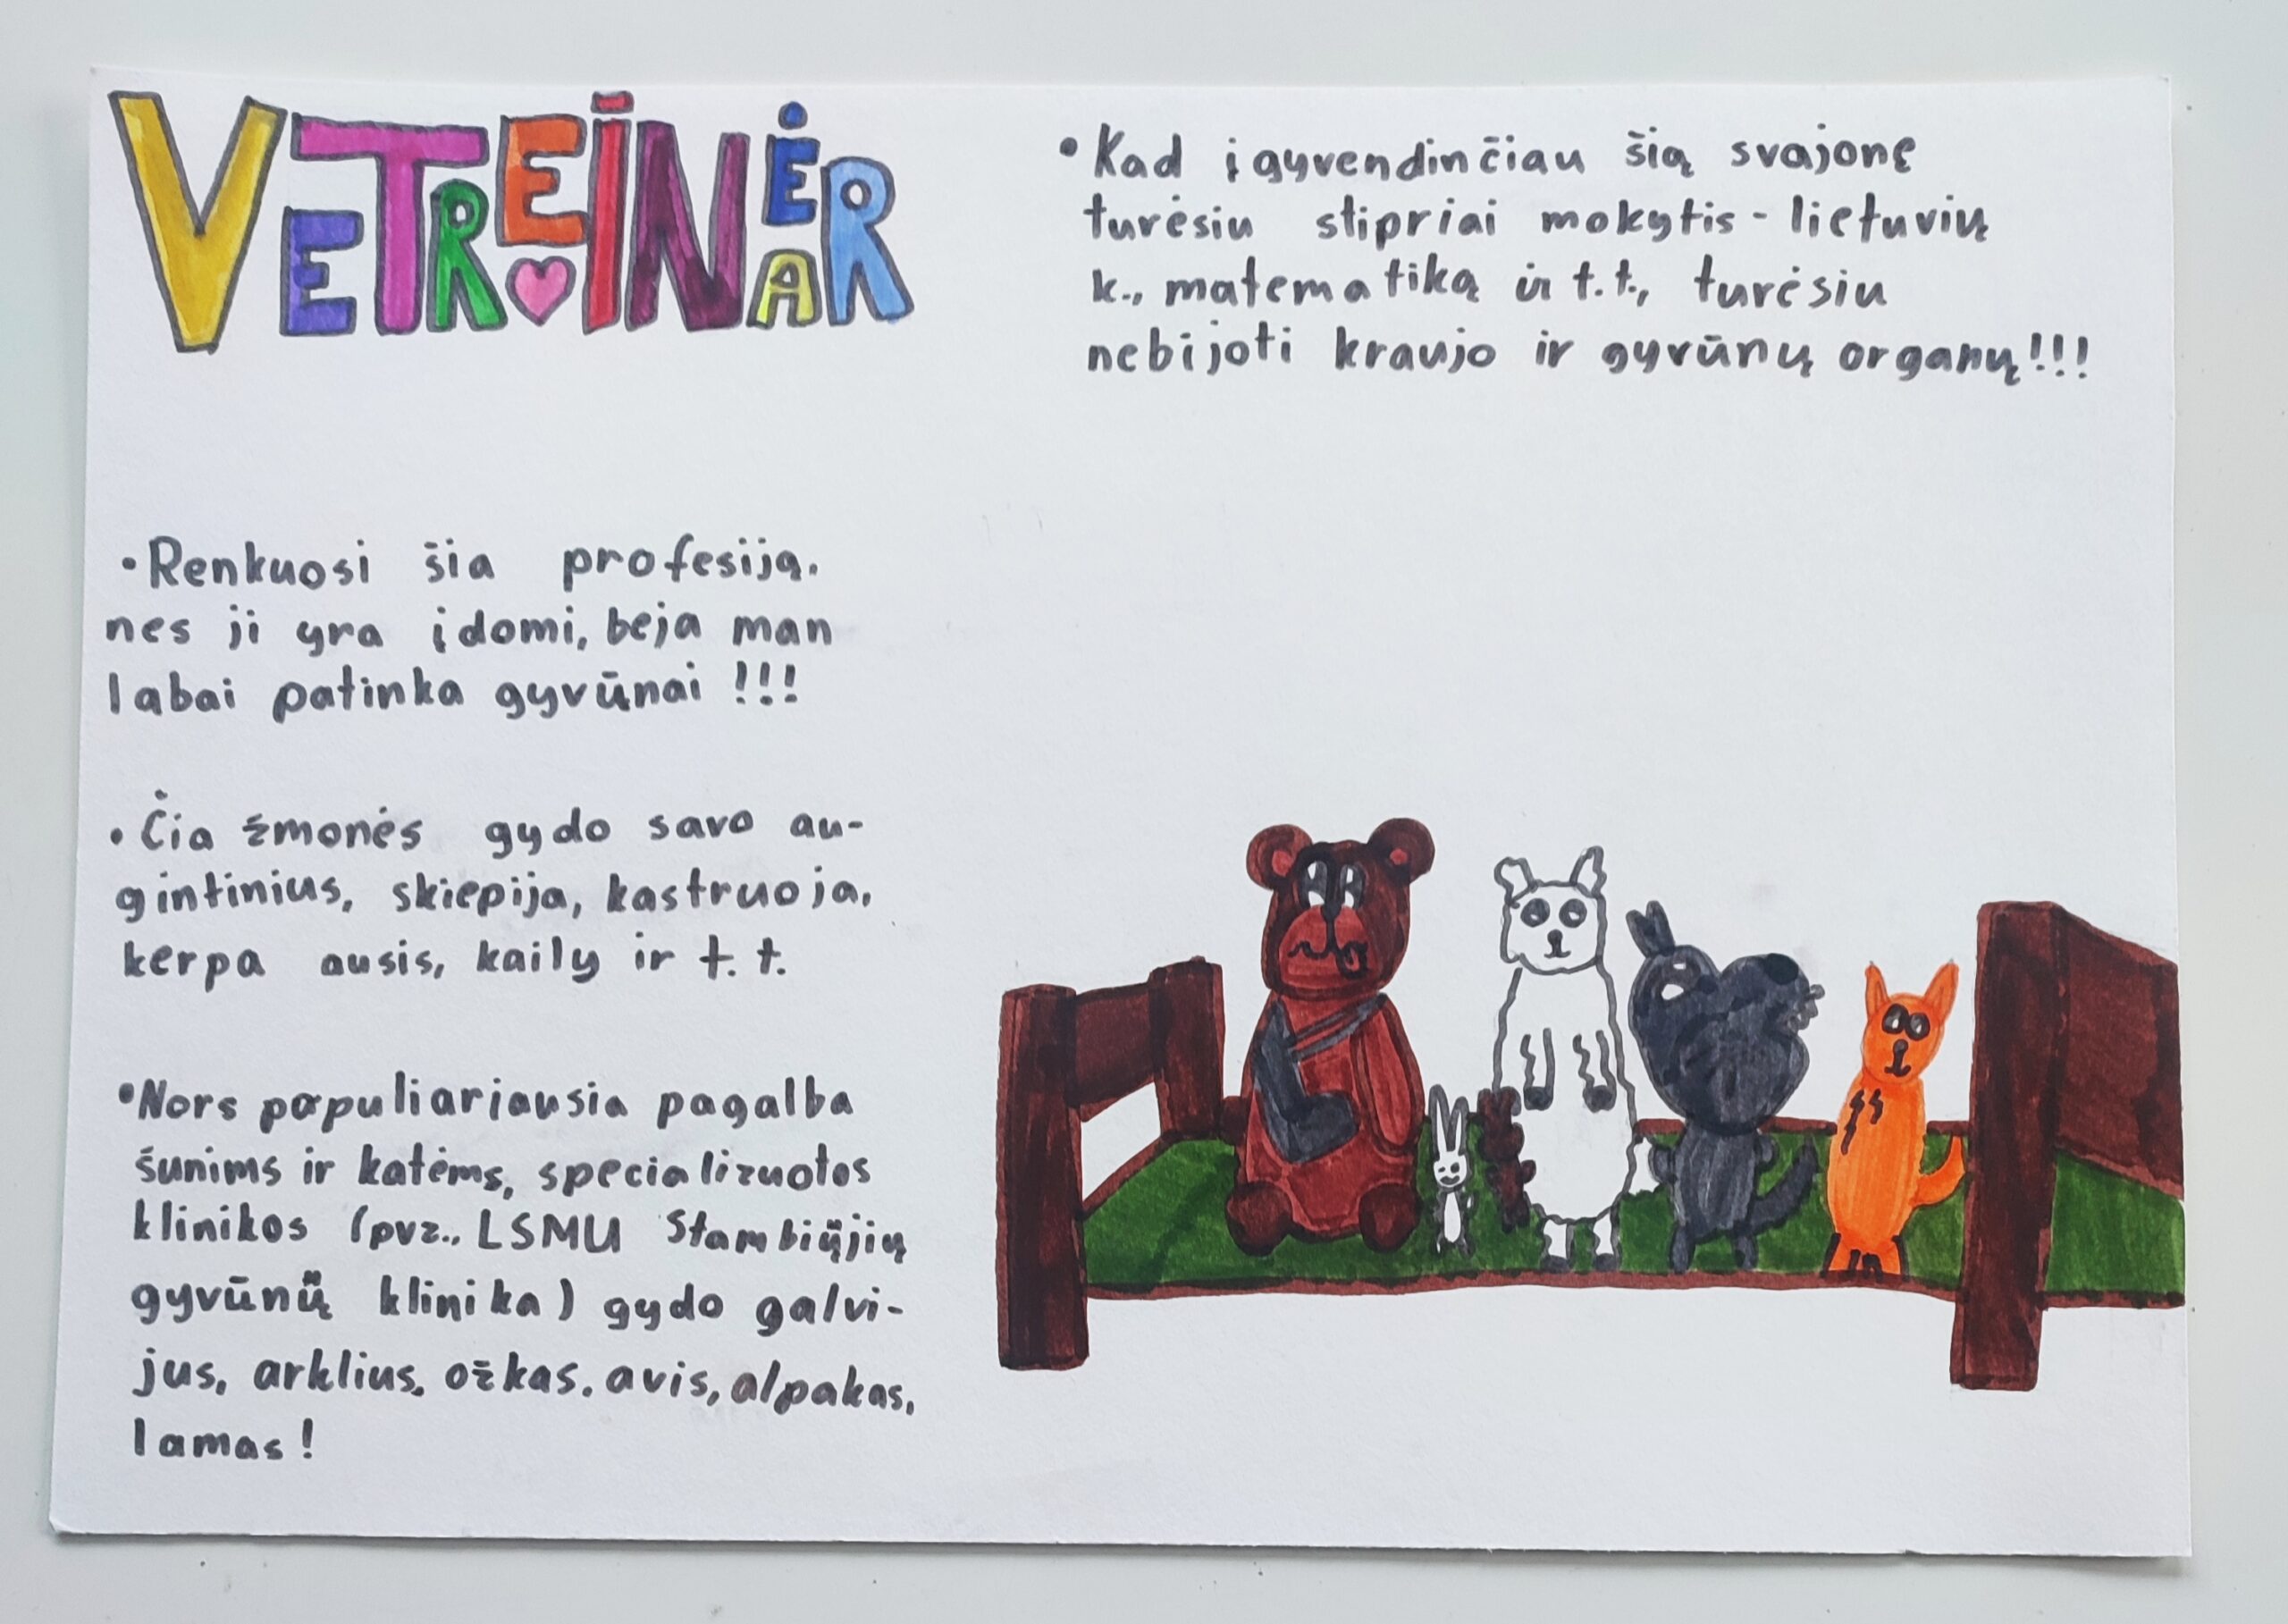 VETREINĖAR
• Renkuosi šia profesiją.
nes ji yra įdomi, beja man
labai patinka gyvūnai !!!
• Čia žmonės gydo savo au-
gintinius, skiepija, kastruoja,
kerpa ausis, kaily ir t. t.
• Nors populiariausia pagalba
šunims ir katėms, specializuotos
klinikos (pvz., LSMU Stambiųjų
gyvūnų klinika) gydo galvi-
jus, arklius, ožkas. avis, alpakas,
lamas!
• Kad įgyvendinčiau šią svajonę
turėsiu stipriai mokytis - lietuvių
k., matematiką ir t.t., turėsiu
nebijoti kraujo ir gyvūnų organų!!!